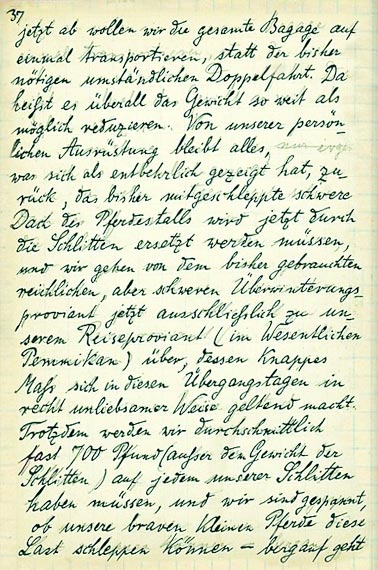 37
jetzt ab wollen wir die gesamte Bagage auf
einmal transportieren, statt der bisher
nötigen umständlichen Doppelfahrt. Da
heißt es überall das Gewicht so weit als
möglich reduzieren. Von unserer persön-
lichen Ausrüstung bleibt alles,
was sich als entbehrlich gezeigt hat, zu
rück, das bisher mitgeschleppte schwere
Dach des Pferdestalls wird jetzt durch
die Schlitten ersetzt werden müssen,
und wir gehen von dem bisher gebrauchten
reichlichen, aber schweren Überwinterungs-
proviant jetzt ausschließlich zu un-
serem Reiseproviant (im Wesentlichen
Pemmikan) über, dessen knappes
Maß sich in diesen Übergangstagen in
recht unliebsamer Weise geltend macht.
Trotzdem werden wir durchschnittlich
fast 700 Pfund (außer dem Gewicht der
Schlitten) auf jedem unserer Schlitten
haben müssen, und wir sind gespannt,
ob unsere braven kleinen Pferde diese
Last schleppen können – bergauf geht